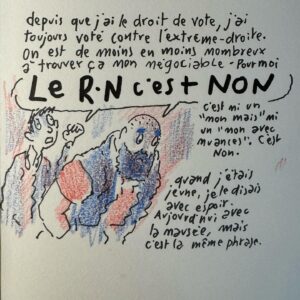 depuis que j'ai le droit de vote, j'ai
toujours voté contre l'extrême-droite.
On est de moins en moins nombreux
à trouver ça mon négociable - Pour moi
LE R.N c'est NON
c'est mi un
"mon mais" mi
un "mon avec
nuances". C'est
Non.
quand j'étais
jeune, je le disais
avec espoir.
Aujourd'hui avec
la nausée, mais
c'est la même phrase.